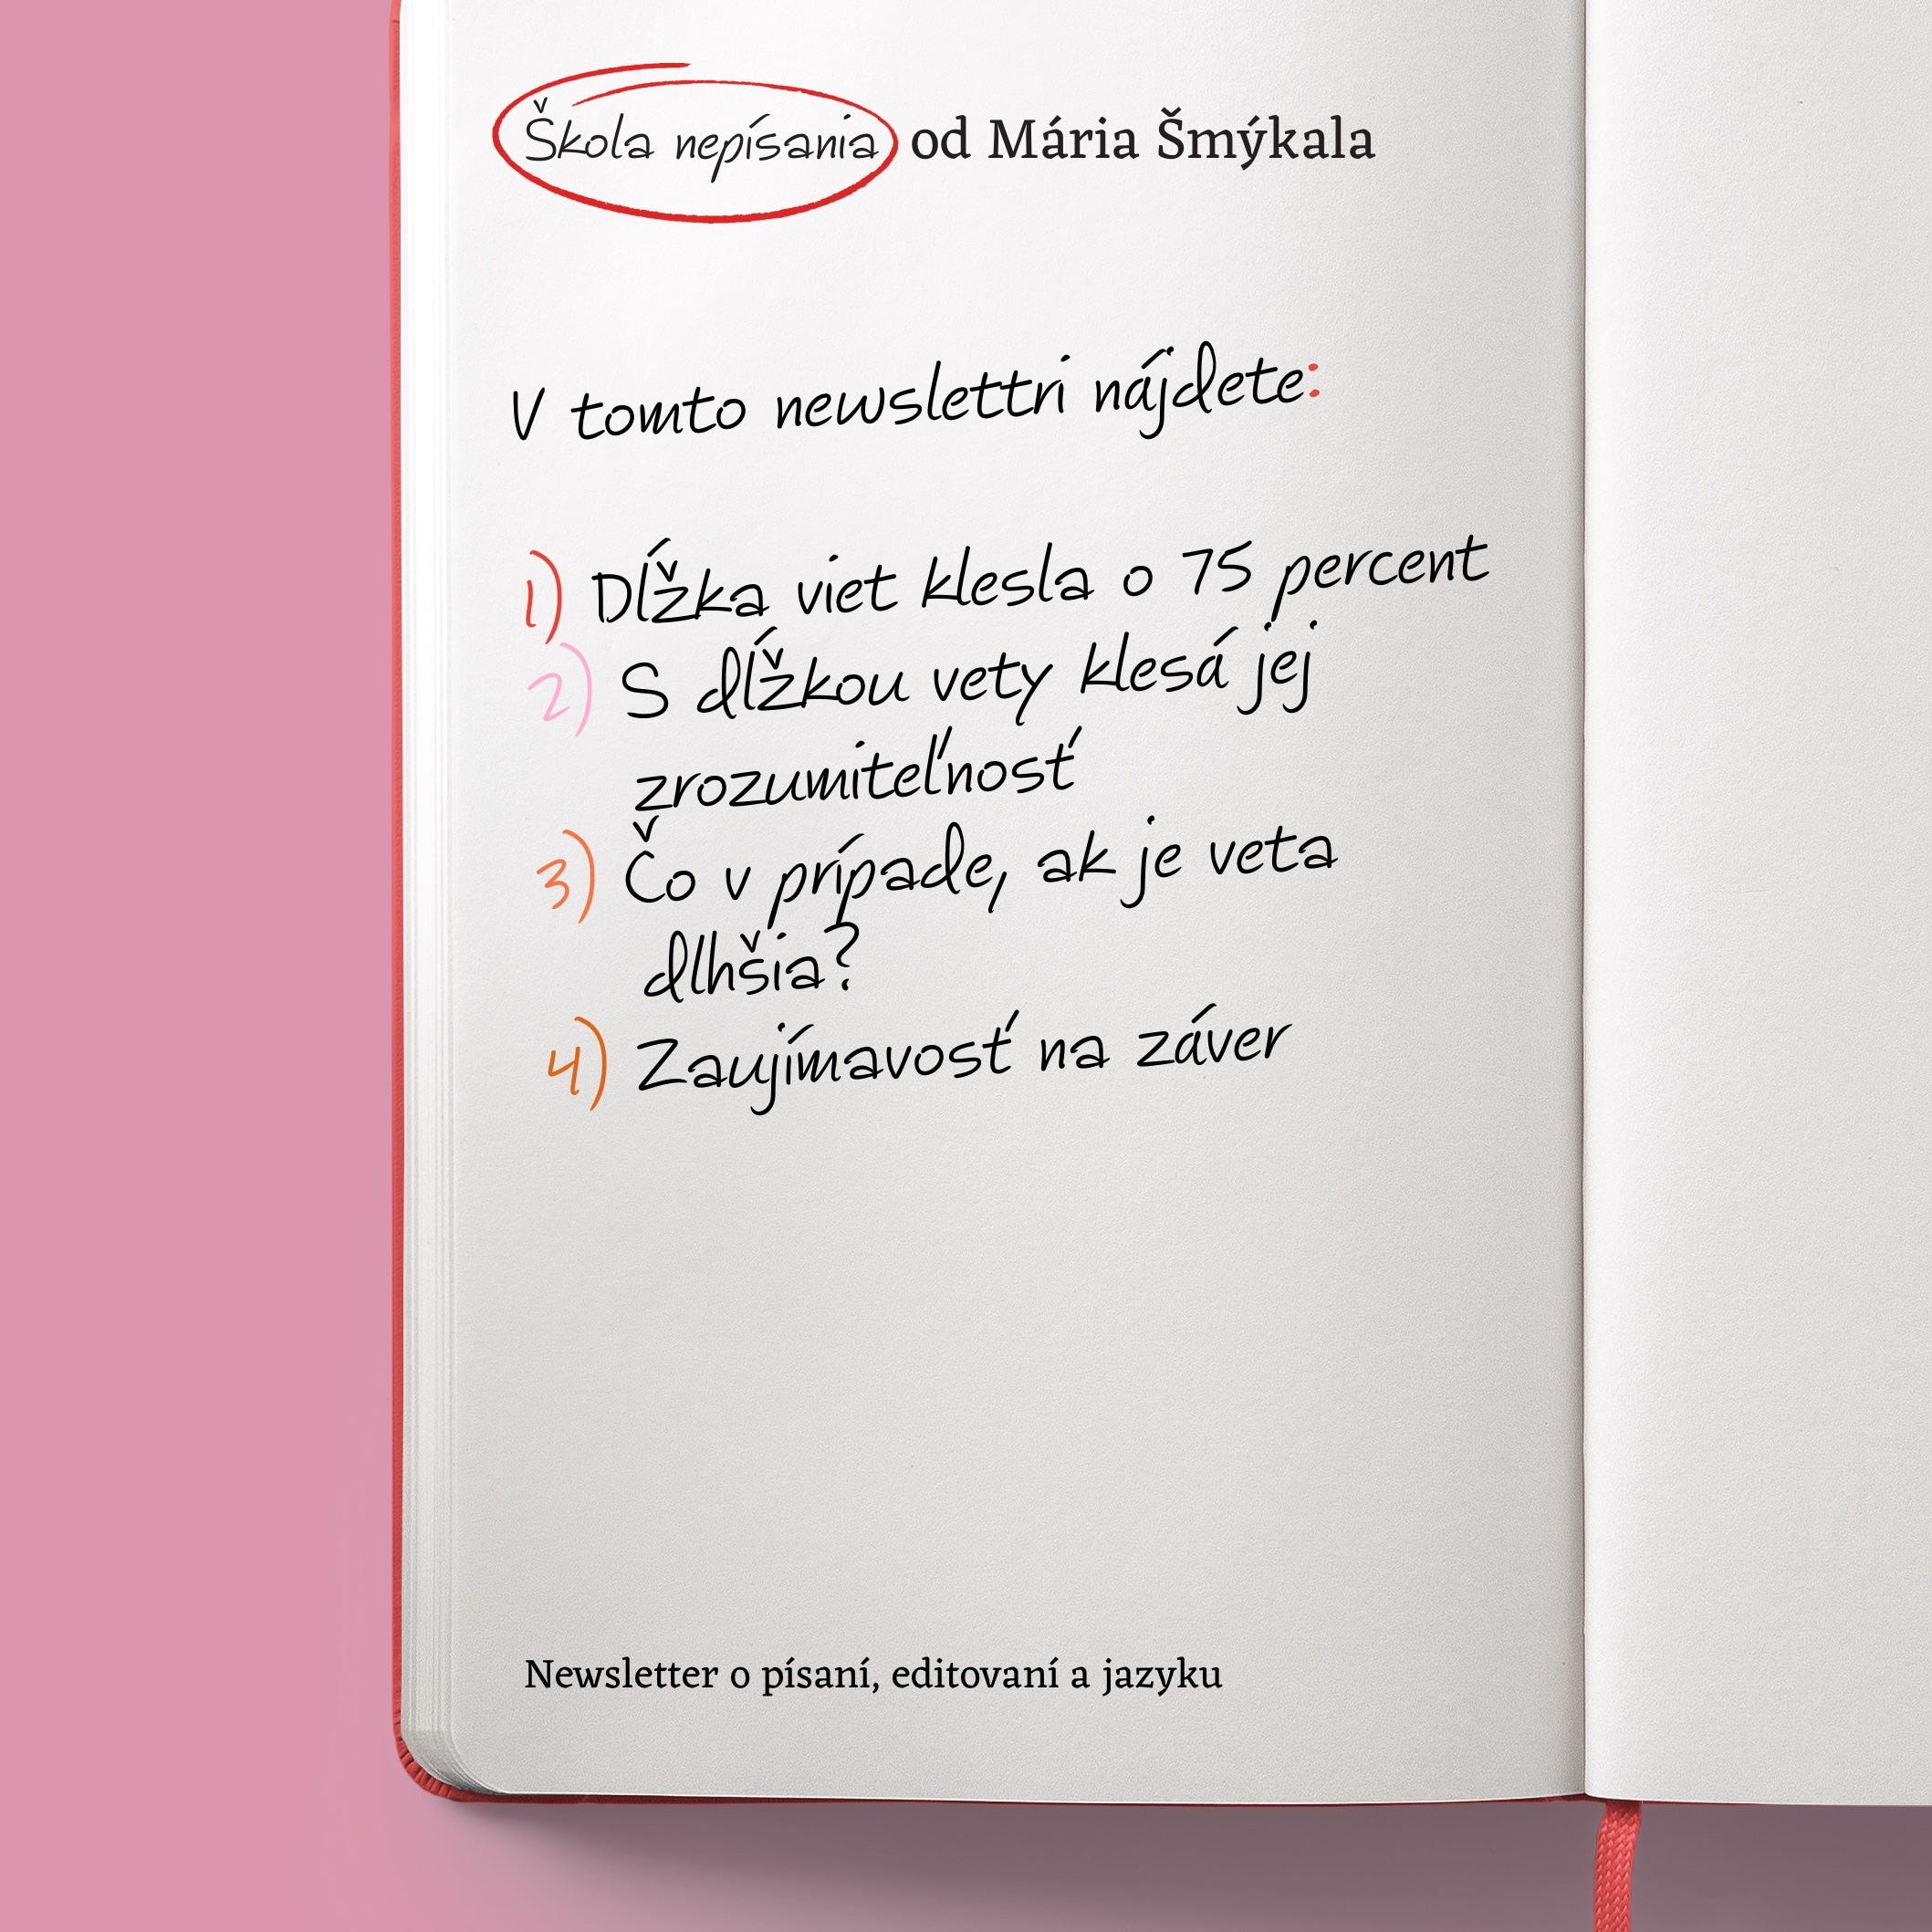 Škola nepísania od Mária Šmýkala
V tomto newslettri nájdete:
1) Dĺžka viet klesla o 75 percent
2) S dĺžkou vety klesá jej
zrozumiteľnosť
3) Čo v prípade, ak je veta
dlhšia?
4) Zaujímavosť na záver
Newsletter o písaní, editovaní a jazyku